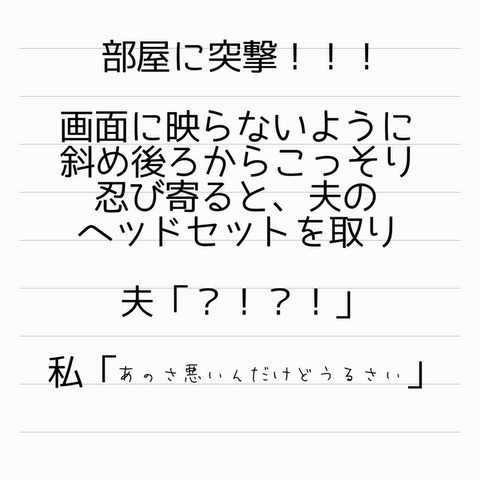 部屋に突撃！！！
画面に映らないように
斜め後ろからこっそり
忍び寄ると、夫の
ヘッドセットを取り
夫「？！？！」
私「あのさ悪いんだけどうるさい」